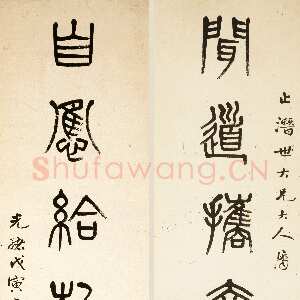 止潛世大兄大人屬
聞道攜
自憑給
光緒戊寅
Shufawang.CN